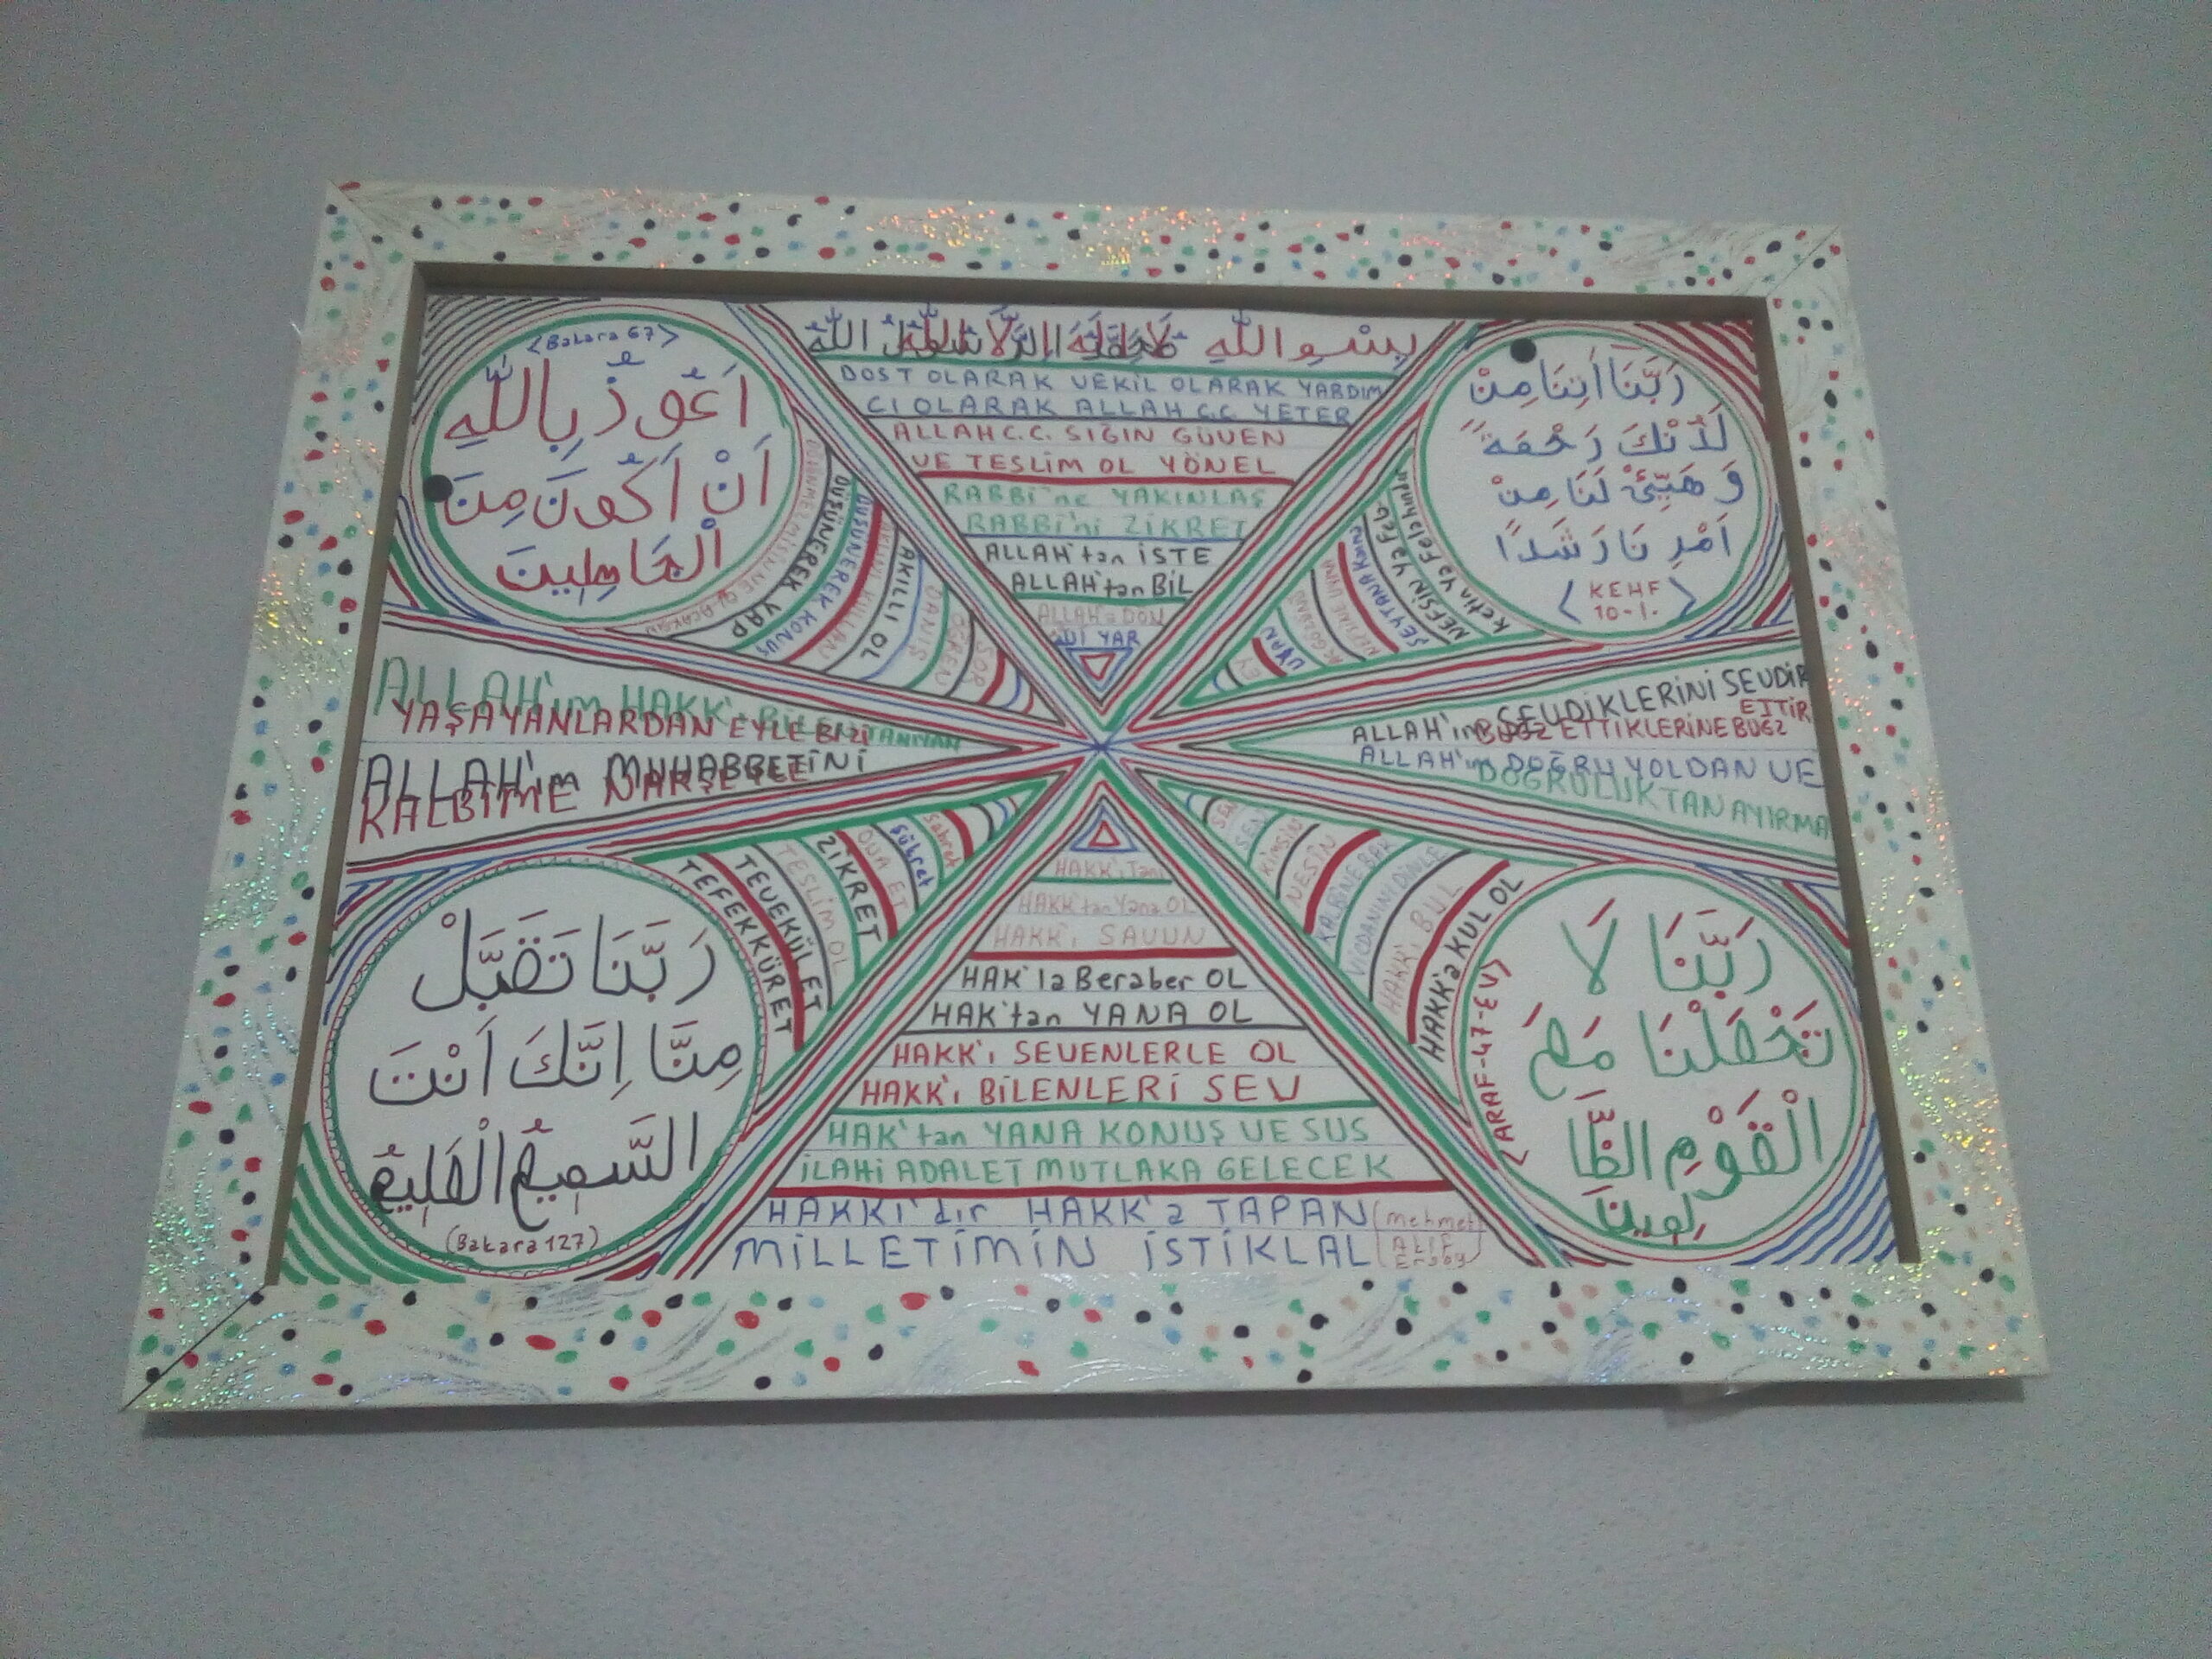 <Bakara 67>
اَعُوذُ بِاللّٰهِ
اَنْ اَكُونَ مِنَ
الْجَاهِلِينَ
بِسْمِ اللّٰهِ
DOST OLARAK VEKİL OLARAK YARDIM
CI OLARAK ALLAH C.C YETER
ALLAH C.C. SIĞIN GÜVEN
VE TESLİM OL YÖNEL
RABBİ'ne YAKINLAŞ
RABBİ'ni ZİKRET
ALLAH'tan İSTE
ALLAH'tan BİL
ALLAH'a DÖN
YAR
رَبَّنَا أَتِنَا مِنْ
لَدُنْكَ رَحْمَةً
وَهَيِّئْ لَنَا مِنْ
اَمْرِنَا رَشَدًا
<KEHF
10-1.>
DÜŞÜNEREK YAP
DÜŞÜNEREK KONUŞ
AKLINI KULLAN
AKILLI OL
DANIŞ
ÖĞREN
SOR
EY
UYAN
NEFSİNE UYMA
ŞEYTANA KANMA
NEFSİN Ya Feb
Ketin Ya Felahındır
ALLAH'ım HAKK'ı BİLEN TANIYAN
YAŞAYANLARDAN EYLE BİZİ
ALLAH'ım MUHABBETİNİ
KALBİME NAKŞEYLE
ALLAH'ım SEVDİKLERİNİ SEVDİR
BUĞZ ETTİKLERİNE BUĞZ
ETTİR
ALLAH'ım DOĞRU YOLDAN VE
DOĞRULUKTAN AYIRMA
TEFEKKÜR ET
TEVEKÜL ET
TESLİM OL
ZİKRET
DUA ET
Şükret
Sabret
HAKK'ı Tanı
HAKK'tan Yana OL
HAKK'ı SAVUN
HAK'la Beraber OL
HAK'tan YANA OL
HAKK'ı SEVENLERLE OL
HAKK'ı BİLENLERİ SEV
HAK'tan YANA KONUŞ VE SUS
İLAHİ ADALET MUTLAKA GELECEK
HAKKI'dır HAKK'a TAPAN
MİLLETİMİN İSTİKLAL
(Mehmet
AKİF
Ersoy)
SEN
SEN
KİMSİN
NESİN
KALBİNE BAK
VİCDANINI DİNLE
HAKK'ı BUL
HAKK'a KUL OL
رَبَّنَا تَقَبَّلْ
مِنَّا اِنَّكَ اَنْتَ
السَّمِيعُ الْعَلِيمُ
(Bakara 127)
<ARAF-47-EV>
رَبَّنَا لَا
تَجْعَلْنَا مَعَ
الْقَوْمِ الظَّا
لِمِينَ